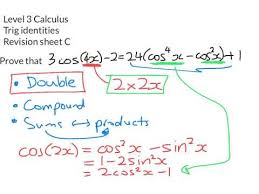 Level 3 Calculus
Trig identities
Revision sheet C
Prove that 3 cos(4x) - 2 = 24(cos⁴x - cos²x) + 1
• Double 2 × 2x
• Compound
• Sums ↔ products
cos(2x) = cos²x - sin²x
= 1 - 2sin²x
= 2cos²x - 1